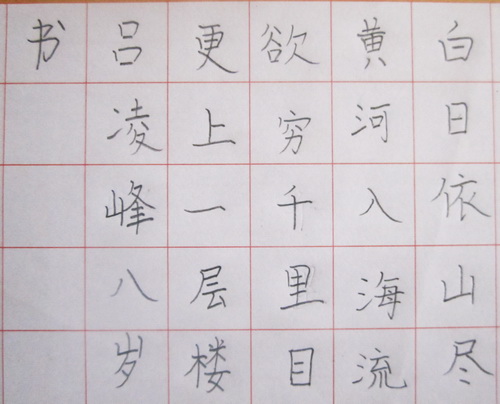 白日依山尽
黄河入海流
欲穷千里目
更上一层楼
吕凌峰八岁
书